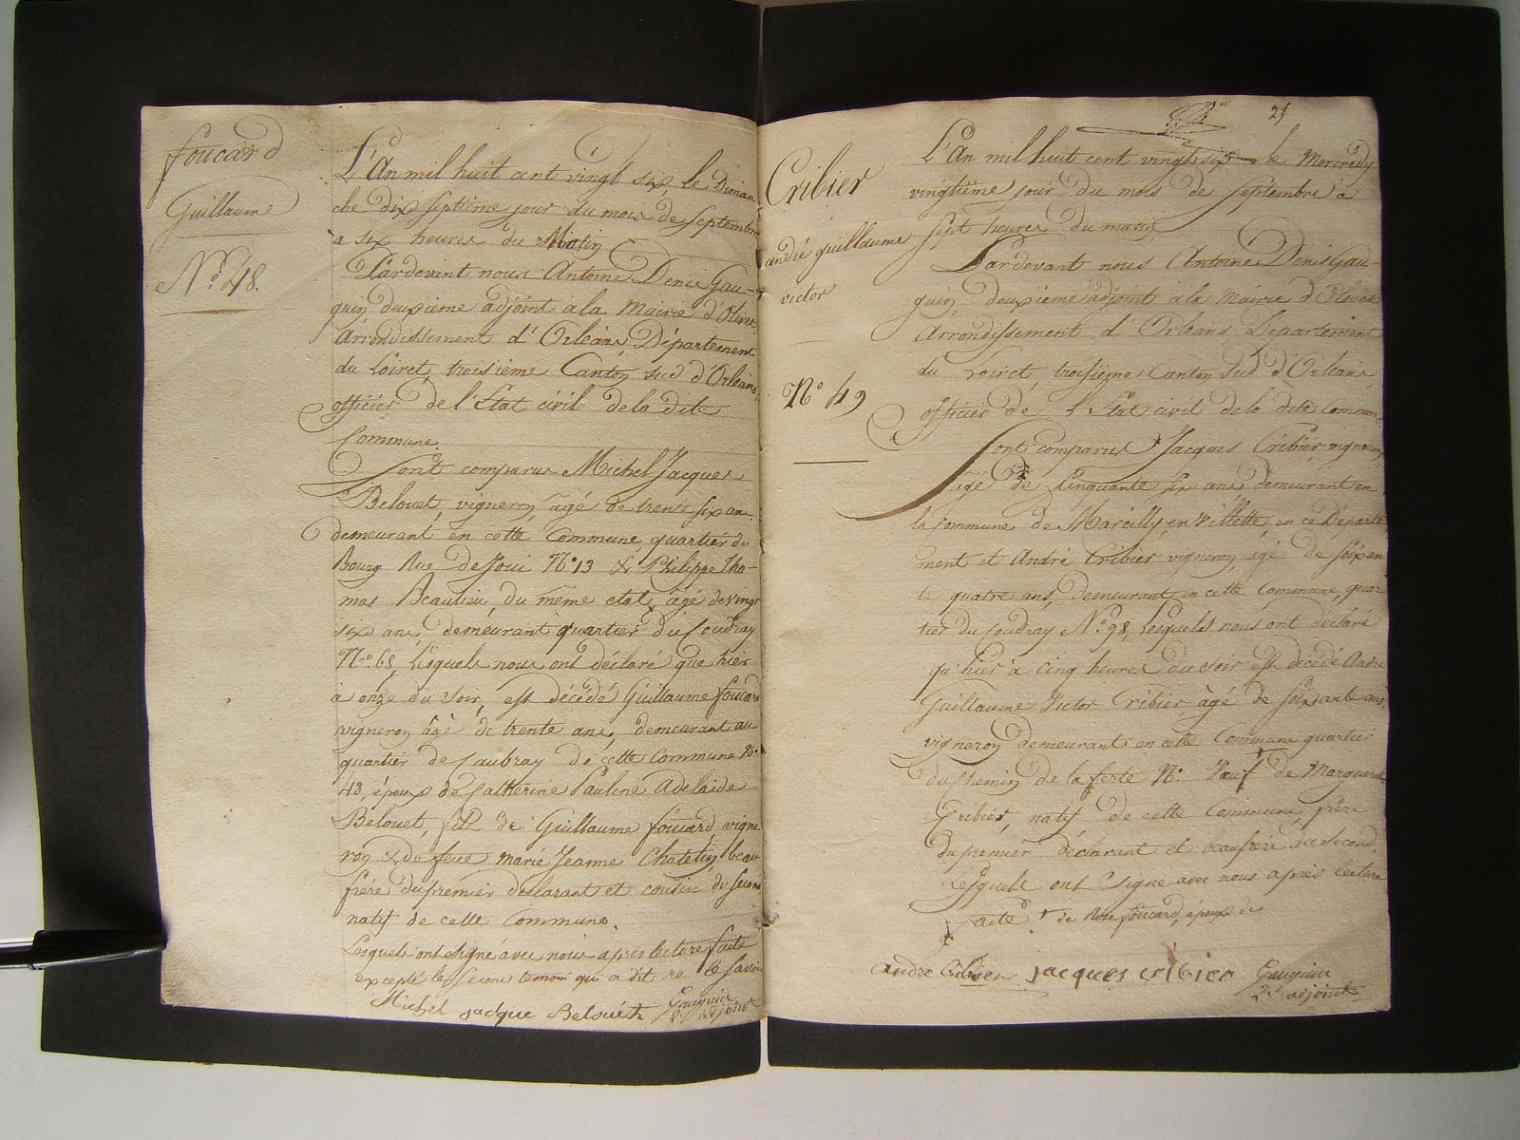 foucard
Guillaume
N.° 48.
L'An mil huit cent vingt six, le Diman
che dix septième jour du mois de septembre
a six heures du Matin
Pardevant nous Antoine Denis Gau-
guin deuxieme adjoint a la Mairie d'Olivet,
Arrondissement d'Orléans Département
du Loiret, troisième Canton sud d'Orléans,
officier de l'Etat civil de la dite
Commune
Sont comparus Michel Jacques
Belouet, vigneron âgé de trente six ans
demeurant en cette Commune quartier du
Bourg Rue de Joui N° 13 & Philippe Tho-
mas Beaulieu, du même etat, âgé de vingt
six ans, demeurant quartier du Coudray
N° 65, lesquels nous ont déclaré que hier
à onze du soir, est décédé Guillaume foucard
vigneron âgé de trente ans, demeurant au
quartier de Caubray de cette Commune N°
43, époux de Catherine Pauline Adelaide
Belouet, fils de Guillaume foucard vigne
ron & de feue marie Jeanne Chatelin, beau
frère du premier déclarant et cousin du second
natif de cette Commune.
Lesquels ont signé avec nous apres lecture faite
excepté le second temoin qui a dit ne le savoir
Michel jacque Belouet Gauguin
2e adjoint
25
Cribier
andré guillaume
victor
N° 49
L'An mil huit cent vingt six le Mercredy
vingtième jour du mois de septembre à
sept heures du matin
Pardevant nous Antoine Denis Gau-
guin deuxieme adjoint à la Mairie d'Olivet
Arrondissement d'Orléans Département
du Loiret, troisième Canton Sud d'Orléans,
officier de l'Etat civil de la dite Commune
Sont comparus Jacques Cribier vigneron,
âgé de Cinquante six ans, demeurant en
la Commune de Marcilly en Villette, en ce Départe
ment et André Cribier vigneron, âgé de soixan
te quatre ans, demeurant en cette Commune, quar
tier du Coudray N° 98, lesquels nous ont déclaré
qu'hier à cinq heures du soir est décédé André
Guillaume Victor Cribier âgé de soixante ans,
vigneron demeurant en cette Commune quartier
du Chemin de la ferté N° Veuf de Margueritte
Cribier, natif de cette Commune, frère
du premier déclarant et beaufrère du second.
Lesquels ont signé avec nous après lecture
de Rose foucard, époux de
andré Cribier jacques cribier Gauguin
2e adjoint